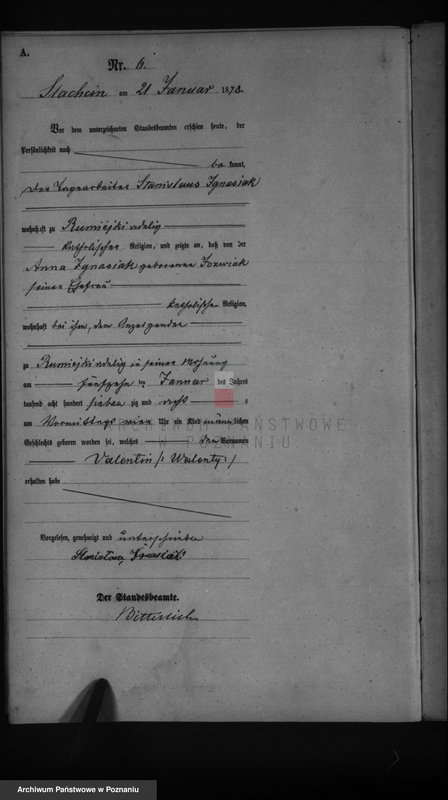 A.
Nr. 6.
am 21 Januar 187
Vor dem unterzeichneten Standesbeamten erschien heute, der
Persönlichkeit nach
be kannt,
der Stanislaus Ignasiak
wohnhaft zu
katholischer Religion, und zeigte an, daß von der
Anna Ignasiak geborenen
seiner Ehefrau
katholischer Religion,
wohnhaft bei ihm, dem Anzeigenden
zu in seiner Wohnung
am fünfzehn ten Januar des Jahres
tausend acht hundert sieben zig und sechs
um Vormittags vier Uhr ein Kind männ lichen
Geschlechts geboren worden sei, welches den Vornamen
ARCHIWUM PAŃSTWOWE
W POZNANIU
Valentin /: Walenty :/
erhalten habe
Vorgelesen, genehmigt und unterschrieben
Stanisław Ignasiak
Der Standesbeamte.
Archiwum Państwowe w Poznaniu